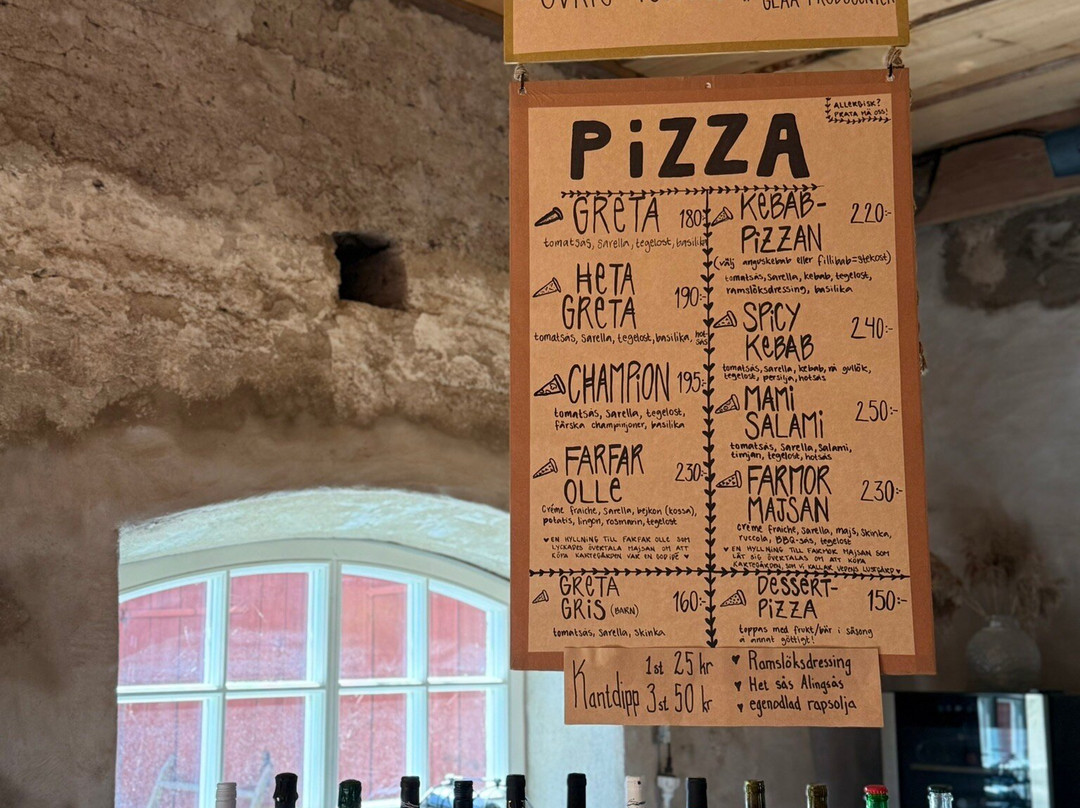 GLAA PRODUCENTER
ALLERGISK?
PRATA MÄ OSS!
PiZZA
GRETA 180:-
tomatsås, sarella, tegelost, basilika
HETA
GRETA 190:-
tomatsås, sarella, tegelost, basilika, hot
sås
CHAMPiON 195:-
tomatsås, sarella, tegelost,
färska champinjoner, basilika
FARFAR
OLLE 230:-
Créme fraiche, sarella, bejkon (kossa),
potatis, lingon, rosmarin, tegelost
♥ EN HYLLNING TILL FARFAR OLLE SOM
LYCKADES ÖVERTALA MAJSAN OM ATT
KÖPA KARTEGÅRDEN VAR EN GOD IDÉ ♥
GRETA
GRIS (BARN) 160:-
tomatsås, sarella, skinka
KEBAB-
PiZZAN 220:-
(välj anguskebab eller fillibab=stekost)
tomatsås, sarella, kebab, tegelost,
ramslöksdressing, basilika
SPiCY
KEBAB 240:-
tomatsås, sarella, kebab, rå gullök,
tegelost, persilja, hotsås
MAMi
SALAMi 250:-
tomatsås, sarella, salami,
timjan, tegelost, hotsås
FARMOR
MAJSAN 230:-
créme fraiche, sarella, majs, skinka,
ruccola, BBQ-sås, tegelost
♥ EN HYLLNING TILL FARMOR MAJSAN SOM
LÄT SIG ÖVERTALAS OM ATT KÖPA
KARTEGÅRDEN, SOM VI KALLAR VEDENS LUSTGÅRD ♥
DESSERT-
PiZZA 150:-
toppas med frukt/bär i säsong
& annat göttigt!
Kantdipp 1st 25 kr
3st 50 kr
♥ Ramslöksdressing
♥ Het sås Alingsås
♥ egenodlad rapsolja